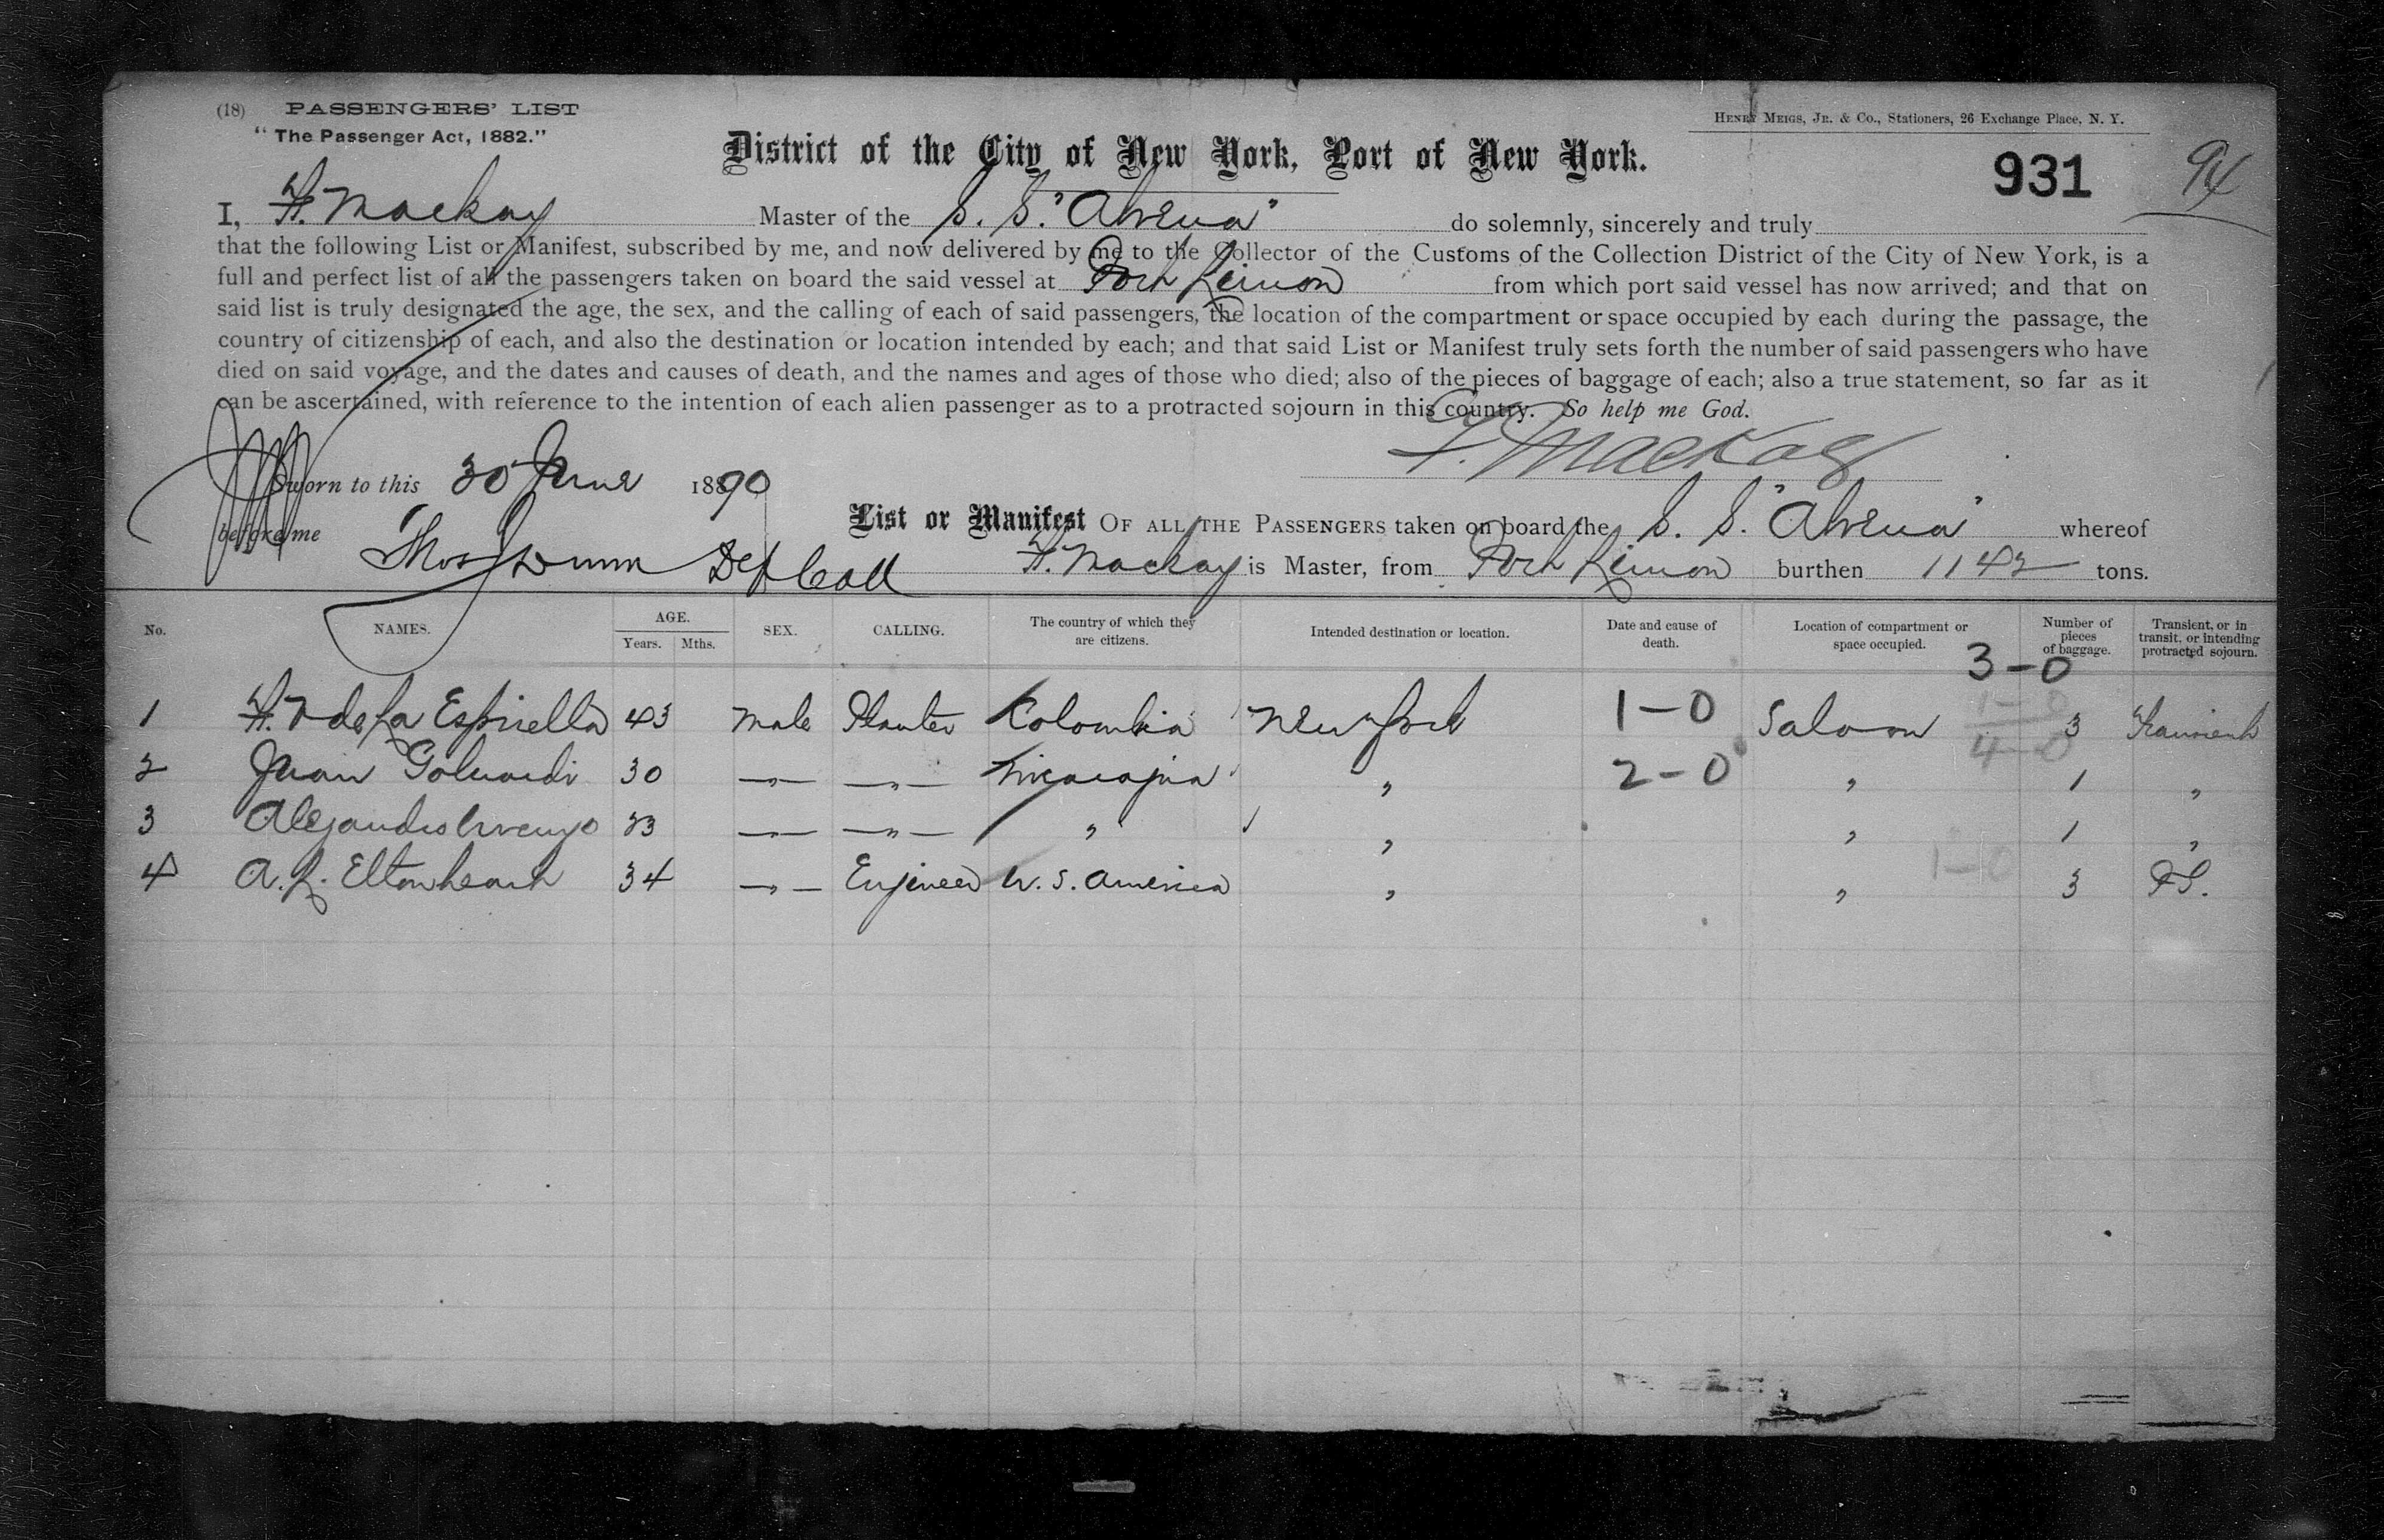 (18) PASSENGERS' LIST
"The Passenger Act, 1882."
HENRY MEIGS, JR. & CO., Stationers, 26 Exchange Place, N. Y.
District of the City of New York, Port of New York.
931
I, F. Mackay Master of the S. S. "Alvena" do solemnly, sincerely and truly
that the following List or Manifest, subscribed by me, and now delivered by me to the Collector of the Customs of the Collection District of the City of New York, is a
full and perfect list of all the passengers taken on board the said vessel at Port Limon from which port said vessel has now arrived; and that on
said list is truly designated the age, the sex, and the calling of each of said passengers, the location of the compartment or space occupied by each during the passage, the
country of citizenship of each, and also the destination or location intended by each; and that said List or Manifest truly sets forth the number of said passengers who have
died on said voyage, and the dates and causes of death, and the names and ages of those who died; also of the pieces of baggage of each; also a true statement, so far as it
can be ascertained, with reference to the intention of each alien passenger as to a protracted sojourn in this country. So help me God.
F. Mackay
Sworn to this 30 June 1890
before me Thos Dunn Dep Coll
List or Manifest OF ALL THE PASSENGERS taken on board the S. S. "Alvena" whereof
F. Mackay is Master, from Port Limon burthen 1142 tons.
No. NAMES. AGE. Years. Mths. SEX. CALLING. The country of which they are citizens. Intended destination or location. Date and cause of death. Location of compartment or space occupied. Number of pieces of baggage. Transient, or in transit, or intending protracted sojourn.
3-0
1 F. V de La Espriella 43 Male Planter Colombia New York 1-0 Saloon 1-0 3 Transient
2 Juan 30 — " — — " — Nicaragua " 2-0 " 4-0 1 "
3 Alejandro 23 — " — — " — " " " 1 "
4 A. L. Eltonhead 34 — " — Engineer U. S. America " " 1-0 3 P.S.